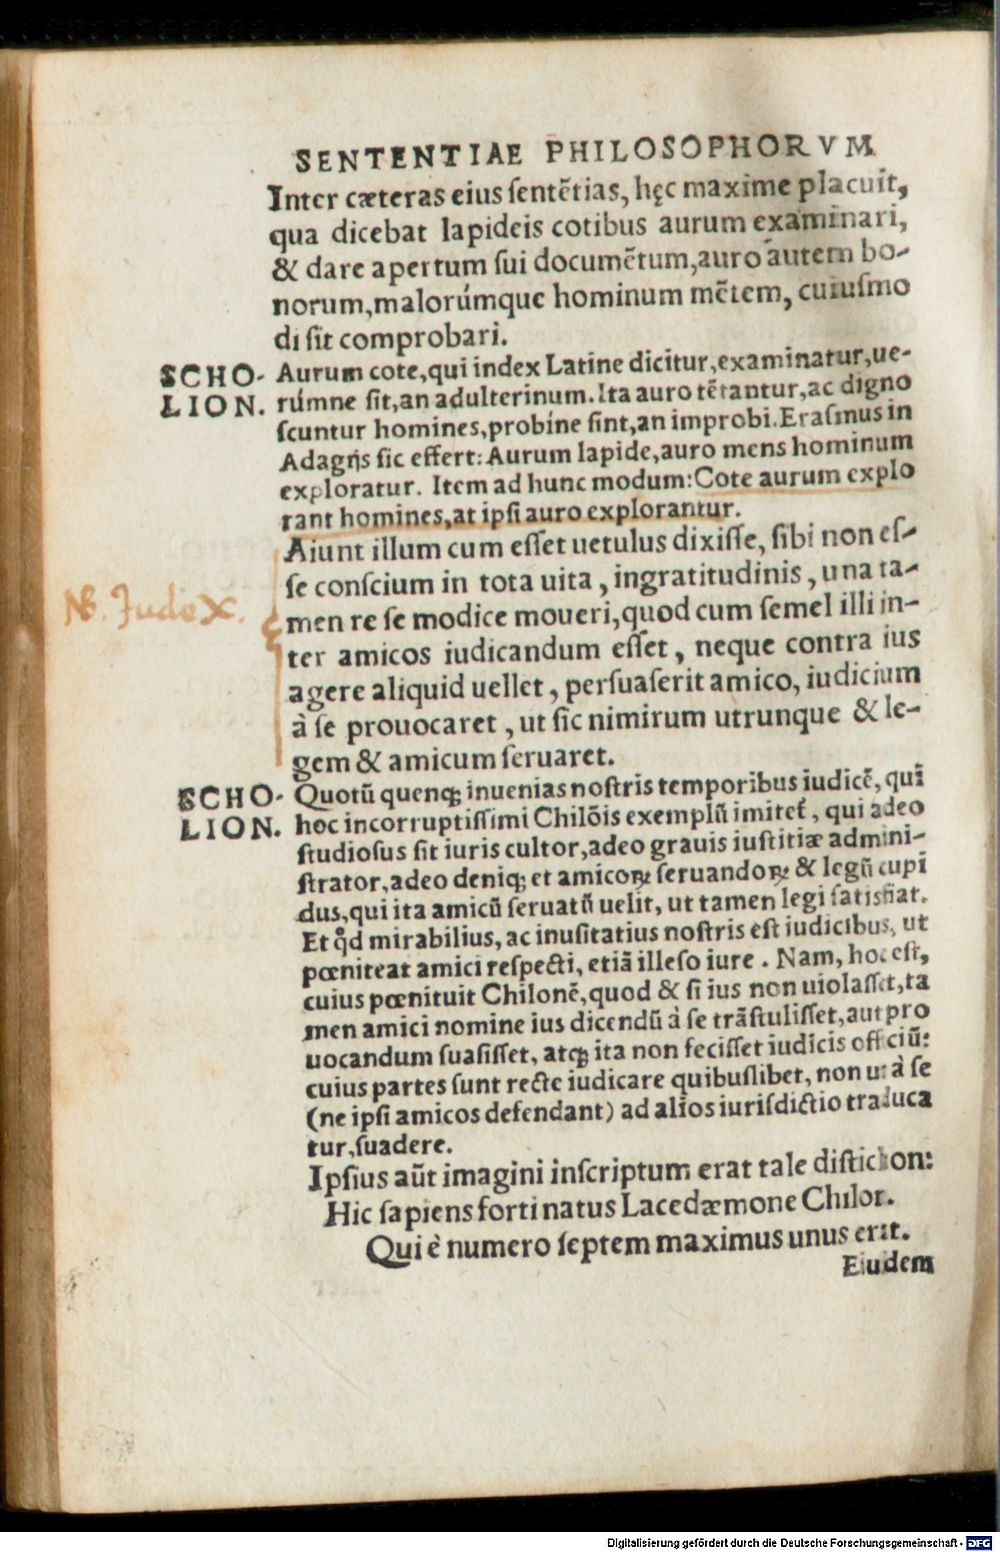 SENTENTIAE PHILOSOPHORVM
Inter cæteras eius ſentẽtias, hęc maxime placuit,
qua dicebat lapideis cotibus aurum examinari,
& dare apertum ſui documẽtum, auro autem bo-
norum, malorúmque hominum mẽtem, cuiuſmo
di ſit comprobari.
SCHO-
LION.
Aurum cote, qui index Latine dicitur, examinatur, ue-
rúmne ſit, an adulterinum. Ita auro tẽtantur, ac digno
ſcuntur homines, probíne ſint, an improbi. Eraſmus in
Adagijs ſic effert: Aurum lapide, auro mens hominum
exploratur. Item ad hunc modum: Cote aurum explo
rant homines, at ipſi auro explorantur.
Aiunt illum cum eſſet uetulus dixiſſe, ſibi non eſ-
ſe conſcium in tota uita, ingratitudinis, una ta-
NB. Judex.
men re ſe modice moueri, quod cum ſemel illi in-
ter amicos iudicandum eſſet, neque contra ius
agere aliquid uellet, perſuaſerit amico, iudicium
à ſe prouocaret, ut ſic nimirum utrunque & le-
gem & amicum ſeruaret.
SCHO-
LION.
Quotũ quenq; inuenias noſtris temporibus iudicẽ, qui
hoc incorruptiſſimi Chilõis exemplũ imitet́, qui adeo
ſtudioſus ſit iuris cultor, adeo grauis iuſtitiæ admini-
ſtrator, adeo deniq; et amicoꝝ ſeruandoꝝ & legũ cupi
dus, qui ita amicũ ſeruatũ uelit, ut tamen legi ſatisfiat.
Et qd̊ mirabilius, ac inuſitatius noſtris eſt iudicibus, ut
pœniteat amici reſpecti, etiã illeſo iure. Nam, hoc eſt,
cuius pœnituit Chilonẽ, quod & ſi ius non uiolaſſet, ta
men amici nomine ius dicendũ à ſe trãſtuliſſet, aut pro
uocandum ſuaſiſſet, atq; ita non feciſſet iudicis officiũ:
cuius partes ſunt recte iudicare quibuſlibet, non ut à ſe
(ne ipſi amicos defendant) ad alios iuriſdictio traduca
tur, ſuadere.
Ipſius aũt imagini inſcriptum erat tale diſtichon:
Hic ſapiens forti natus Lacedæmone Chilon.
Qui è numero ſeptem maximus unus erat.
Eiudem
Digitalisierung gefördert durch die Deutsche Forschungsgemeinschaft - DFG